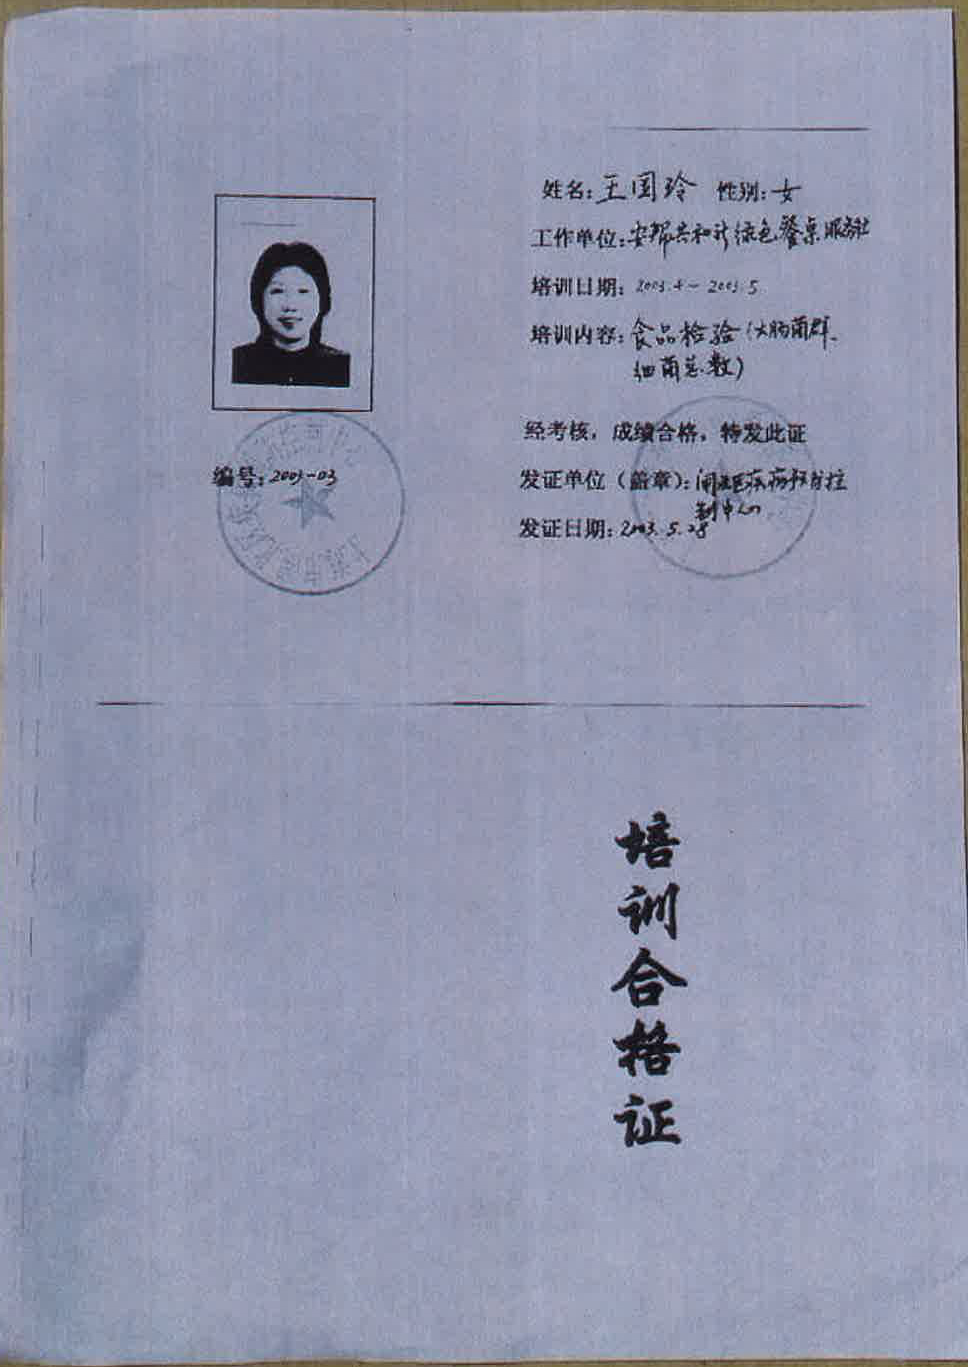 姓名:王国玲 性别:女
工作单位:安邦共和新绿色餐桌服务社
培训日期:2003.4-2003.5
培训内容:食品检验(大肠菌群、
细菌总数)
经考核,成绩合格,特发此证
编号:2003-03
发证单位(盖章):闸北区疾病预防控
制中心
发证日期:2003.5.28
培训合格证